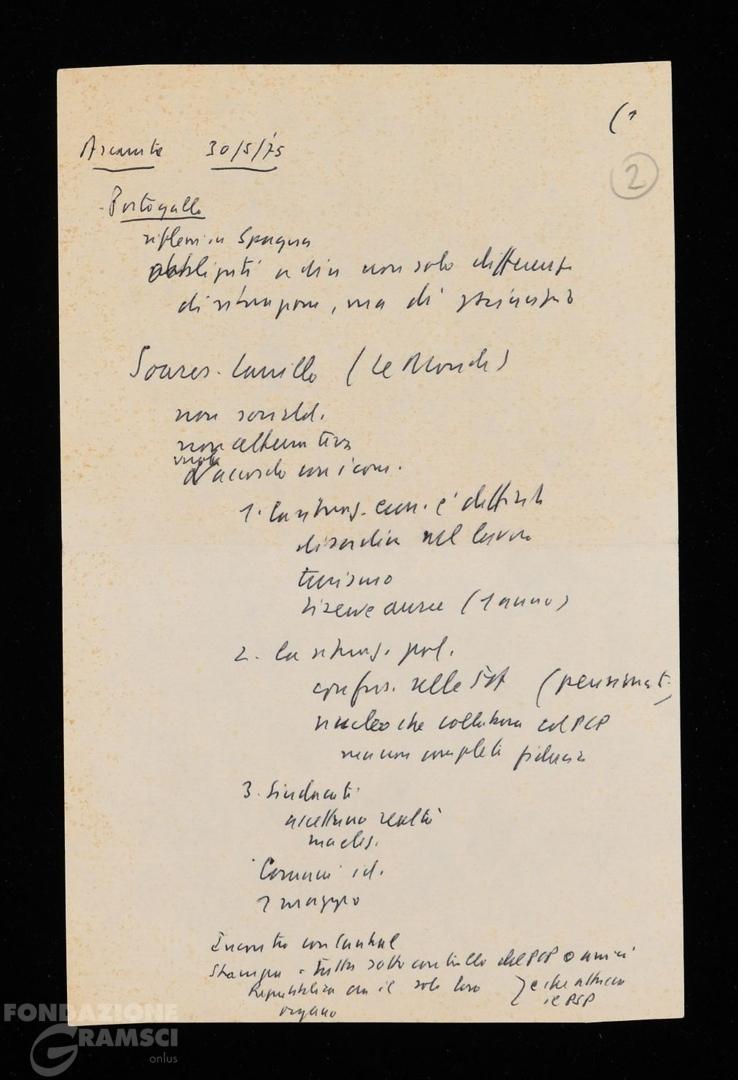 (1
2
30/5/75
- Portogallo
riflessi in Spagna
obbligati a dire non solo differenze
di situazione, ma di
Soares - Carrillo (Le Monde)
non
non alternativa
vuole
d'accordo con i com.
1. La situaz. econ. è difficile
disordine nel lavoro
turismo
riserve auree (1 anno)
2. La situaz. pol.
confus. nelle (pensionati)
nucleo che collabora col PCP
ma non completa fiducia
3. Sindacati
accettano realtà
ma
Comuni id.
1 maggio
Incontro con Cunhal
Stampa - tutta sotto controllo del PCP o amici
Repubblica era il solo loro } e che attacca
organo il PSP
FONDAZIONE
GRAMSCI
onlus